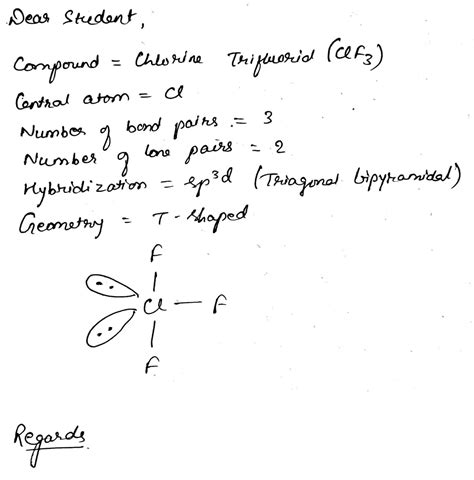 Dear Student,
Compound = Chlorine Trifluorid (ClF₃)
Central atom = Cl
Number of bond pairs = 3
Number of lone pairs = 2
Hybridization = sp³d (Triagonal bipyramidal)
Geometry = T-shaped
F
Cl — F
F
Regards